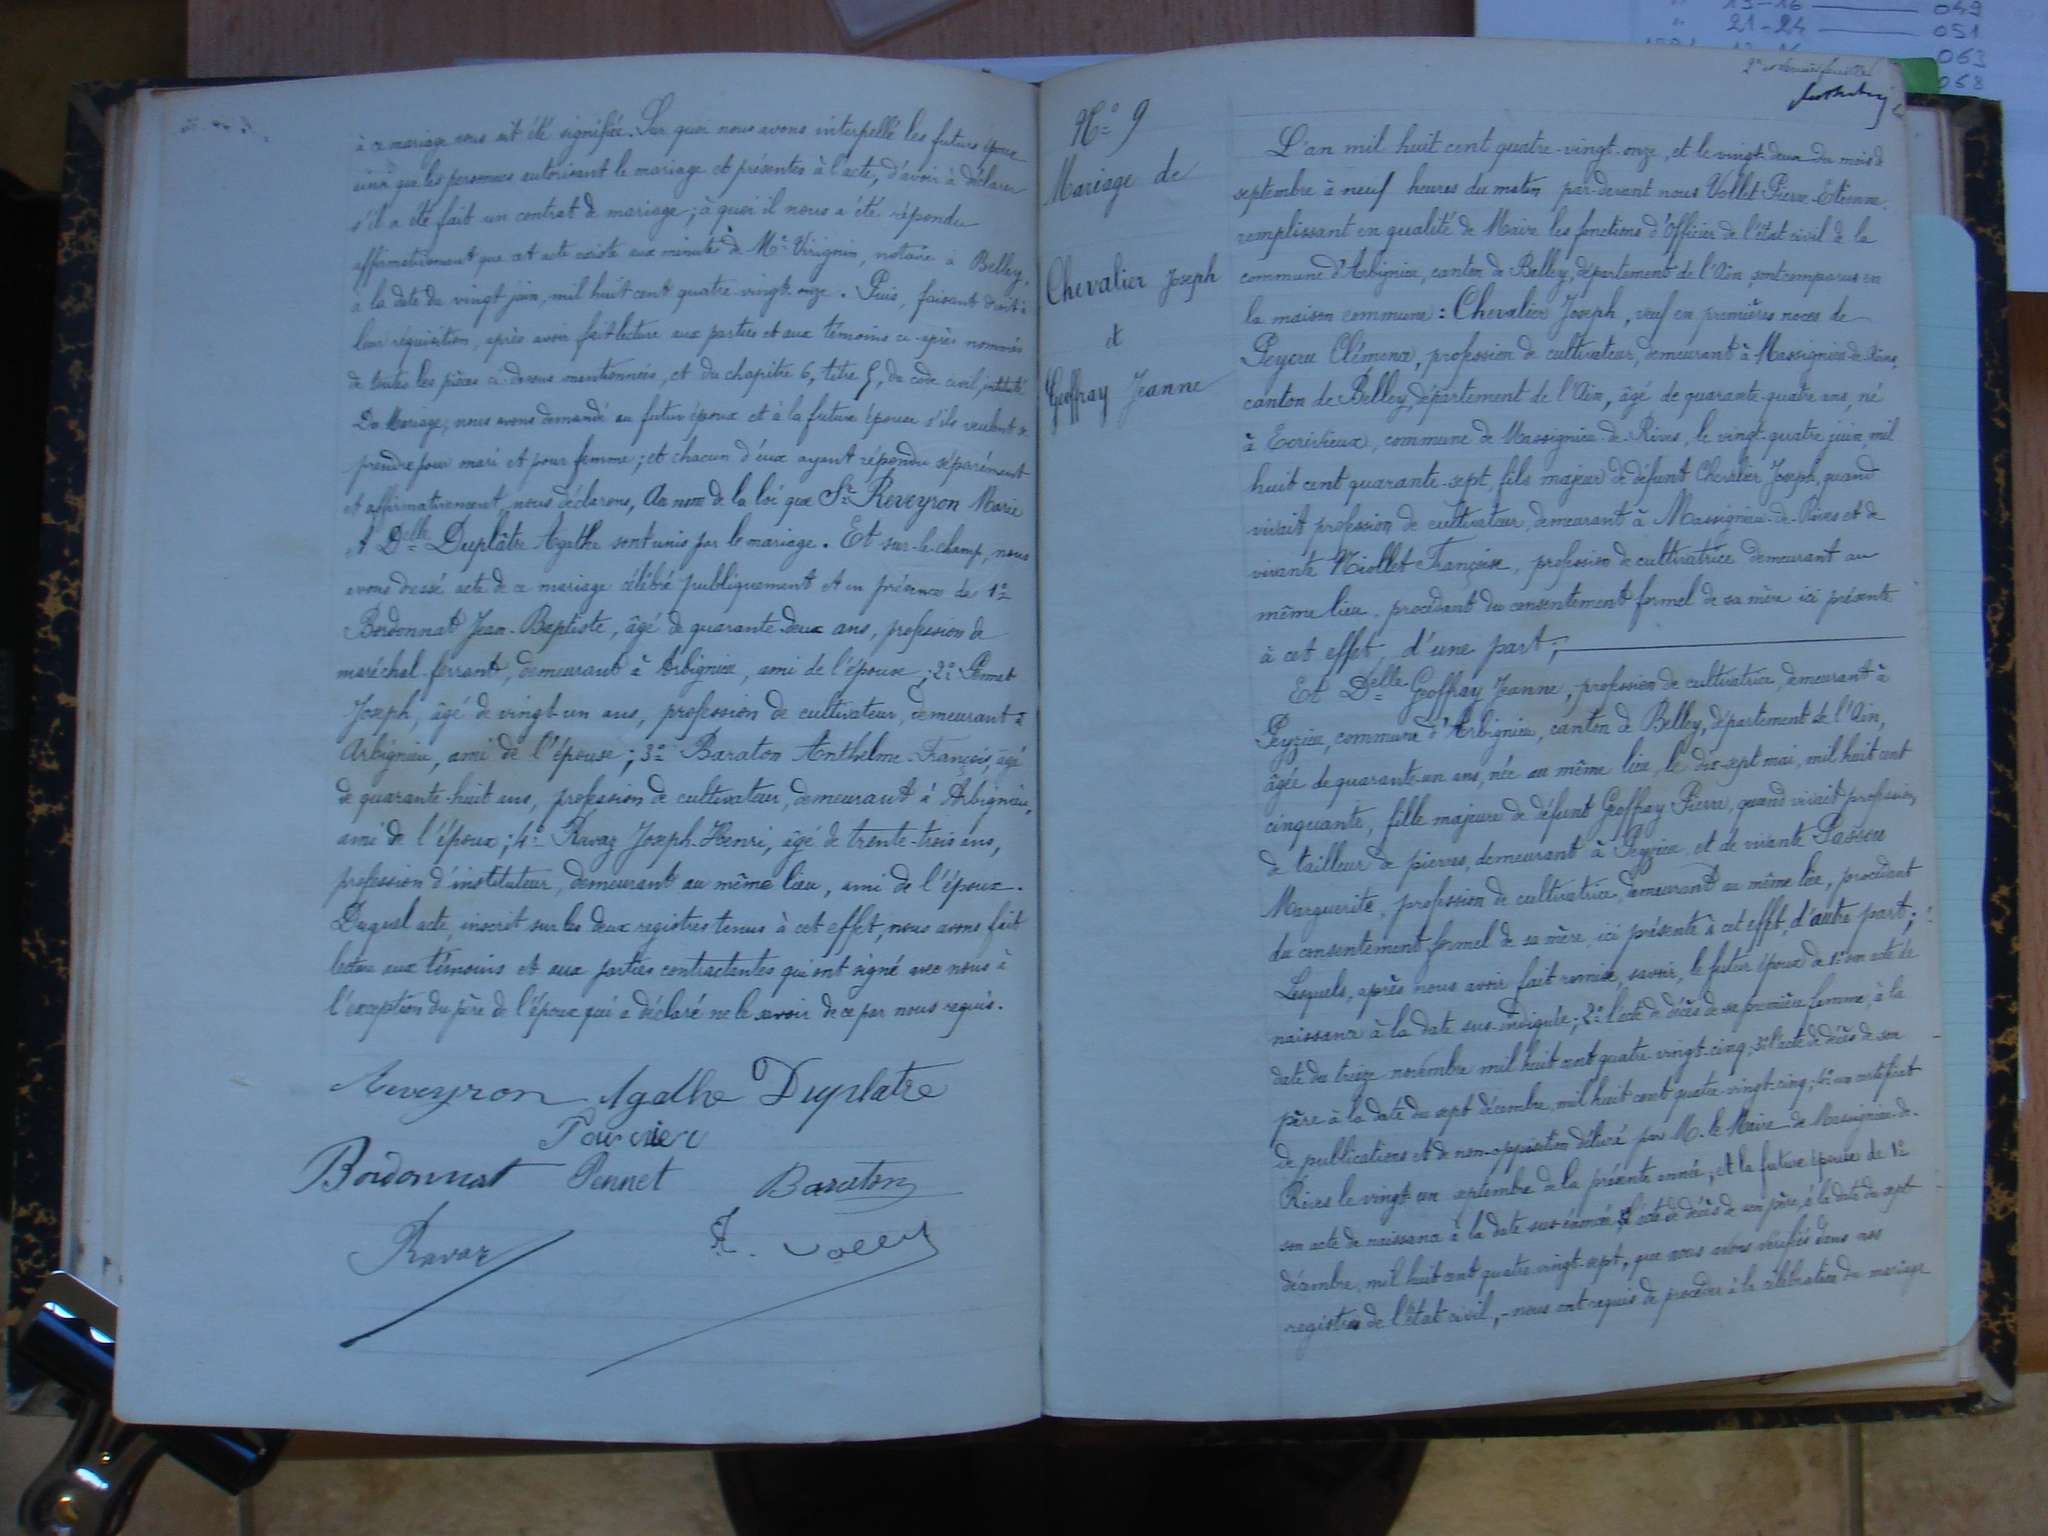 à ce mariage nous ait été signifiée. Sur quoi nous avons interpellé les futurs époux
ainsi que les personnes autorisant le mariage et présentes à l'acte, d'avoir à déclarer
s'il a été fait un contrat de mariage; à quoi il nous a été répondu
affirmativement que cet acte existe aux minutes de Me Virignin, notaire à Belley,
à la date du vingt juin, mil huit cent quatre-vingt-onze. Puis, faisant droit à
leur réquisition, après avoir fait lecture aux parties et aux témoins ci-après nommés
de toutes les pièces ci-dessus mentionnées, et du chapitre 6, titre 5, du code civil, intitulé
Du Mariage, nous avons demandé au futur époux et à la future épouse s'ils veulent se
prendre pour mari et pour femme; et chacun d'eux ayant répondu séparément
et affirmativement, nous déclarons, Au nom de la loi que Sr Reveyron Marie
et Delle Duplâtre Agathe sont unis par le mariage. Et sur-le-champ, nous
avons dressé acte de ce mariage célébré publiquement et en présence de 1°
Bordonnat Jean-Baptiste, âgé de quarante-deux ans, profession de
maréchal-ferrant, demeurant à Arbignieu, ami de l'épouse; 2° Pennet
Joseph, âgé de vingt-un ans, profession de cultivateur, demeurant à
Arbignieu, ami de l'épouse; 3° Baraton Anthelme-François, âgé
de quarante-huit ans, profession de cultivateur, demeurant à Arbignieu,
ami de l'époux; 4° Ravaz Joseph-Henri, âgé de trente-trois ans,
profession d'instituteur, demeurant au même lieu, ami de l'époux.
Duquel acte, inscrit sur les deux registres tenus à cet effet, nous avons fait
lecture aux témoins et aux parties contractantes qui ont signé avec nous à
l'exception du père de l'époux qui a déclaré ne le savoir de ce par nous requis.
Reveyron Agathe Duplatre
Bordonnat Pennet Baraton
Ravaz
N° 9
Mariage de
Chevalier Joseph
et
Geoffray Jeanne
L'an mil huit cent quatre-vingt-onze, et le vingt-deux du mois de
septembre à neuf heures du matin par-devant nous Vollet Pierre-Etienne,
remplissant en qualité de Maire les fonctions d'Officier de l'état civil de la
commune d'Arbignieu, canton de Belley, département de l'Ain, sont comparus en
la maison commune: Chevalier Joseph, veuf en premières noces de
Peycru Clémence, profession de cultivateur, demeurant à Massignieu-de-Rives,
canton de Belley, département de l'Ain, âgé de quarante-quatre ans, né
à Ecrivieux, commune de Massignieu-de-Rives, le vingt-quatre juin, mil
huit cent quarante-sept, fils majeur de défunt Chevalier Joseph, quand
vivait profession de cultivateur, demeurant à Massignieu-de-Rives et de
vivante Viollet Françoise, profession de cultivatrice demeurant au
même lieu, procédant du consentement formel de sa mère ici présente
à cet effet, d'une part;
Et Delle Geoffray Jeanne, profession de cultivatrice, demeurant à
Peyzieu, commune d'Arbignieu, canton de Belley, département de l'Ain,
âgée de quarante-un ans, née au même lieu, le dix-sept mai, mil huit cent
cinquante, fille majeure de défunt Geoffray Pierre, quand vivait profession
de tailleur de pierres, demeurant à Peyzieu et de vivante
Marguerite, profession de cultivatrice, demeurant au même lieu, procédant
du consentement formel de sa mère, ici présente à cet effet, d'autre part;
Lesquels, après nous avoir fait remise, savoir, le futur époux de 1° son acte de
naissance à la date sus-indiquée; 2° l'acte de décès de sa première femme, à la
date du treize novembre mil huit cent quatre-vingt-cinq; 3° l'acte de décès de son
père à la date du sept décembre, mil huit cent quatre-vingt-cinq; 4° un certificat
de publications et de non-opposition délivré par M. le Maire de Massignieu-de-
Rives le vingt-un septembre de la présente année; et la future épouse de 1°
son acte de naissance à la date sus-énoncée, l'acte de décès de son père, à la date du sept
décembre, mil huit cent quatre-vingt-sept, que nous avons vérifiés dans nos
registres de l'état civil, - nous ont requis de procéder à la célébration du mariage
13-16 049
" 21-24 051
063
068